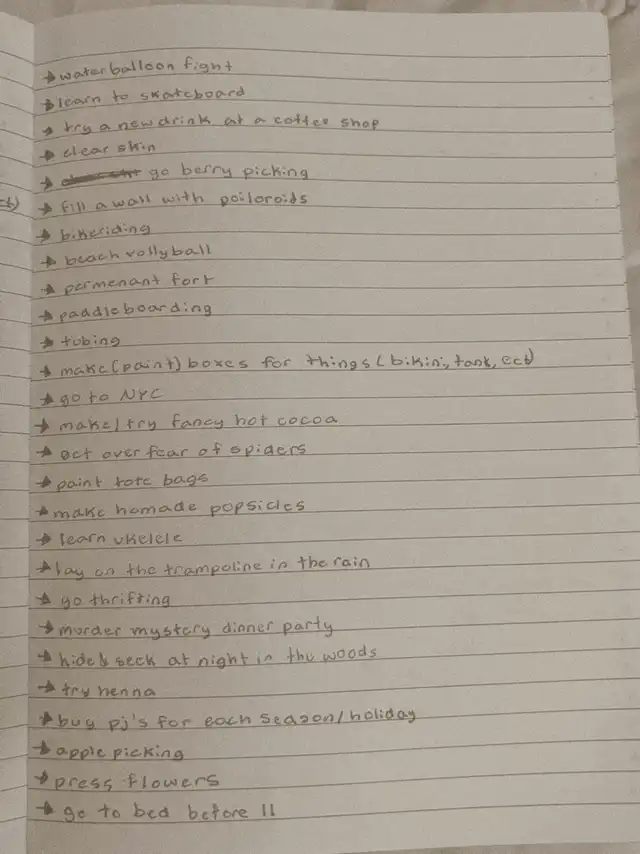 → water balloon fight
→ learn to skateboard
→ try a new drink at a coffee shop
→ clear skin
→ go berry picking
→ fill a wall with poiloroids
→ bikeriding
→ beach vollyball
→ permenant fort
→ paddleboarding
→ tubing
→ make (paint) boxes for things (bikini, tank, ect)
→ go to NYC
→ make/try fancy hot cocoa
→ get over fear of spiders
→ paint tote bags
→ make homade popsicles
→ learn ukelele
→ lay on the trampoline in the rain
→ go thrifting
→ murder mystery dinner party
→ hide & seek at night in the woods
→ try henna
→ buy pj's for each season/holiday
→ apple picking
→ press flowers
→ go to bed before 11